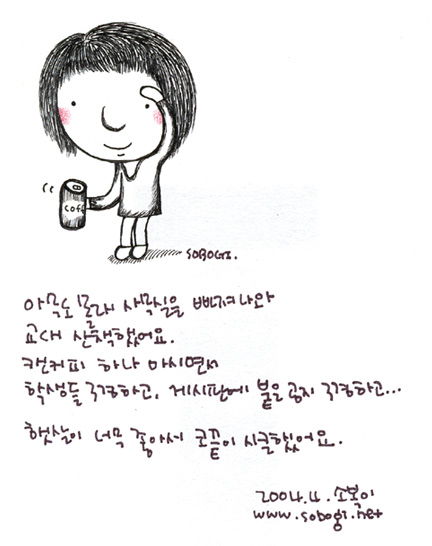 coff
SOBOGI.
아무도 몰래 사무실을 빠져나와
교대 산책했어요.
캔커피 하나 마시면서
학생들 구경하고, 게시판에 붙은 공지 구경하고...
햇살이 너무 좋아서 코끝이 시큼했어요.
2004.4. 소복이
www.sobogi.net